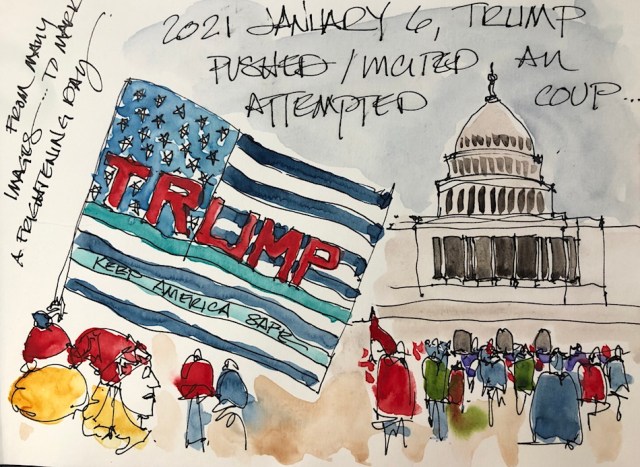 2021 JANUARY 6, TRUMP
PUSHED / INCITED AN
ATTEMPTED COUP...
FROM MANY
IMAGES... TO MARK
A FRIGHTENING DAY
TRUMP
KEEP AMERICA SAFE